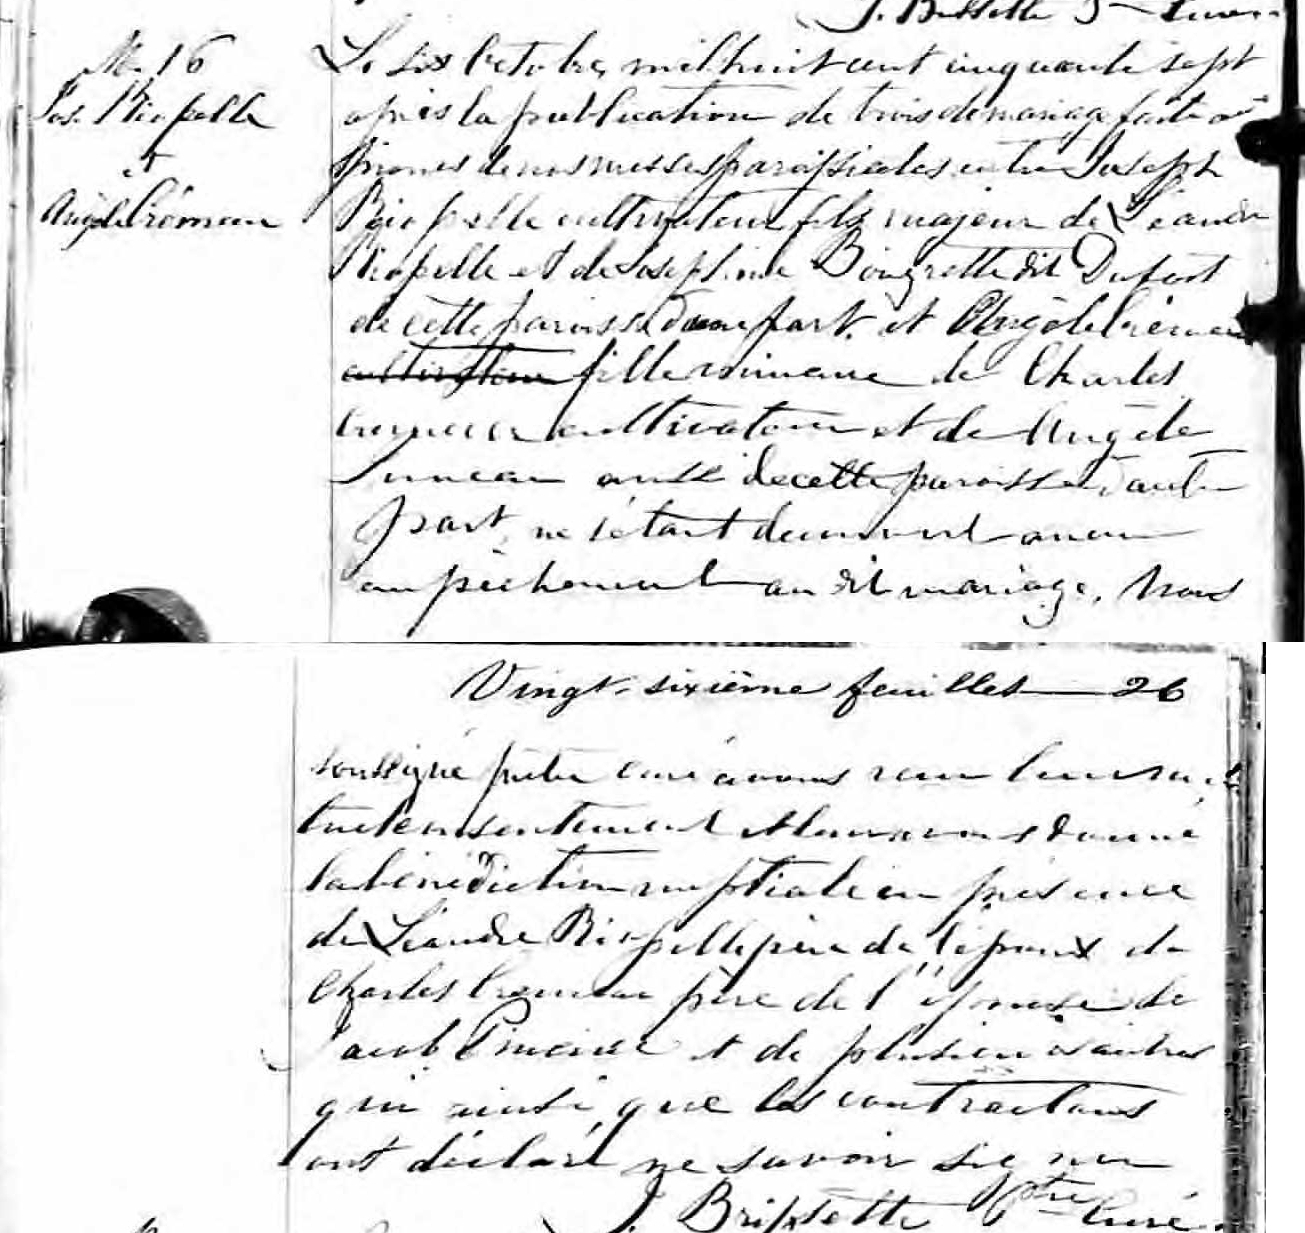 J. Brissette Ptre Curé.
M. 16
Jos. Riopelle
et
Angèle Crémeau
Le six Octobre, mil huit cent cinquante sept
après la publication de trois de mariage faite aux
prones de nos messes paroissiales entre Joseph
Riopelle cultivateur fils majeur de Léandre
Riopelle et de Josephine Bougrette dit Dufort
de cette paroisse d'une part. et Angèle Crémeau
cultivateur fille mineure de Charles
Cremeau cultivateur et de Angèle
Juneau aussi de cette paroisse, d'autre
part, ne s'étant decouvert aucun
empêchement au dit mariage, Nous
Vingt-sixième feuillet 26
soussigné prêtre curé avons reçu leur mu
tuel consentement et leur avons donné
la bénédiction nuptiale en présence
de Léandre Riopelle père de l'époux de
Charles Cremeau père de l'épouse de
Jacob et de plusieurs autres
qui ainsi que les contractants
ont déclaré ne savoir signer
J. Brissette Ptre Curé.